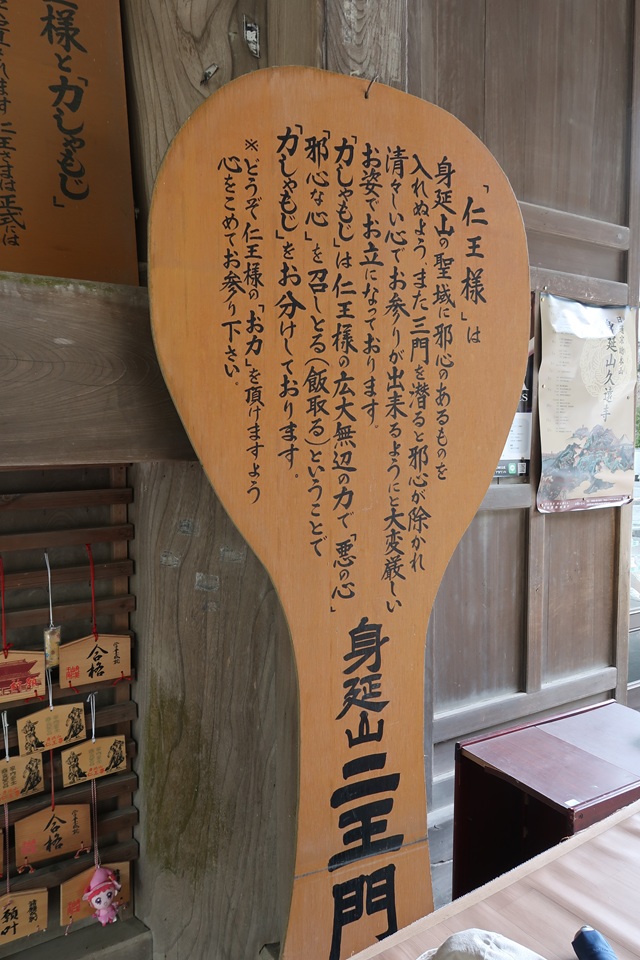 「仁王様」は
身延山の聖域に邪心のあるものを
入れぬよう、また三門を潜ると邪心が除かれ
清々しい心でお参りが出来るようにと大変厳しい
お姿でお立になっております。
「力しゃもじ」は仁王様の広大無辺の力で「悪の心」
「邪心な心」を召しとる(飯取る)ということで
「力しゃもじ」をお分けしております。
※どうぞ仁王様の「お力」を頂けますよう
心をこめてお参り下さい。
身延山二王門
王様と「力しゃもじ」
仁王さまは正式には
身延山久遠寺
合格
合格
願叶